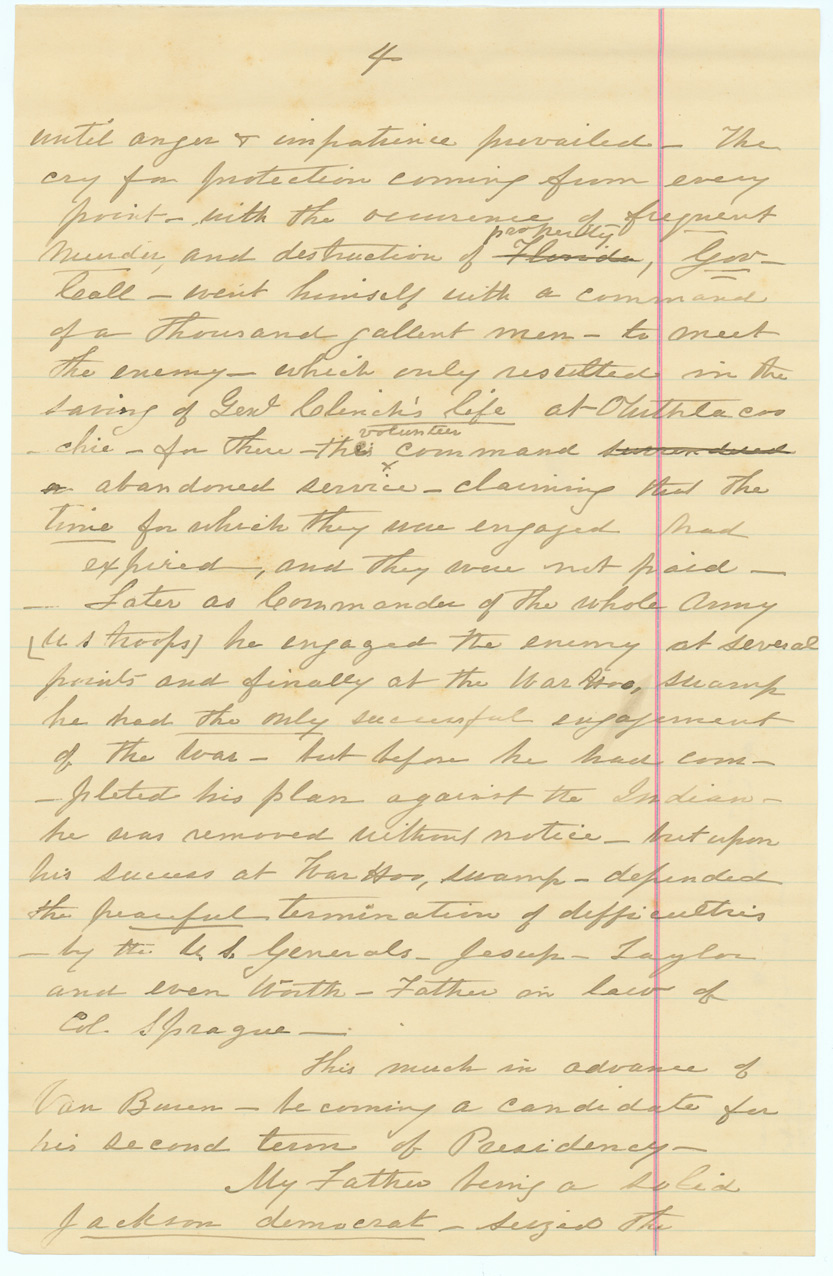 4
until anger & impatience prevailed – The
cry for protection coming from every
point – with the occurence of frequent
property
Murder, and destruction of Florida, Gov–
Call – went himself with a command
of a thousand gallent men – to meet
the enemy – which only resulted in the
saving of Genl Clinch's life at Outhlacoo
volunteer
– chie – for there – the command surrendered
a abandoned service – claiming that the
time for which they were engaged had
expired, and they were not paid –
– Later as Commander of the whole Army
[U S troops] he engaged the enemy at several
points and finally at the War Hoo, swamp
he had the only successful engagement
of the War – but before he had com–
–pleted his plan against the Indian –
he was removed without notice – but upon
his success at War Hoo, swamp – depended
the peaceful termination of difficulties
– by the U. S. Generals – Jesup – Taylor
and even Worth – Father in law of
Col. Sprague –
This much in advance of
Van Buren – becoming a candidate for
his second term of Presidency –
My Father being a solid
Jackson democrat – seized the